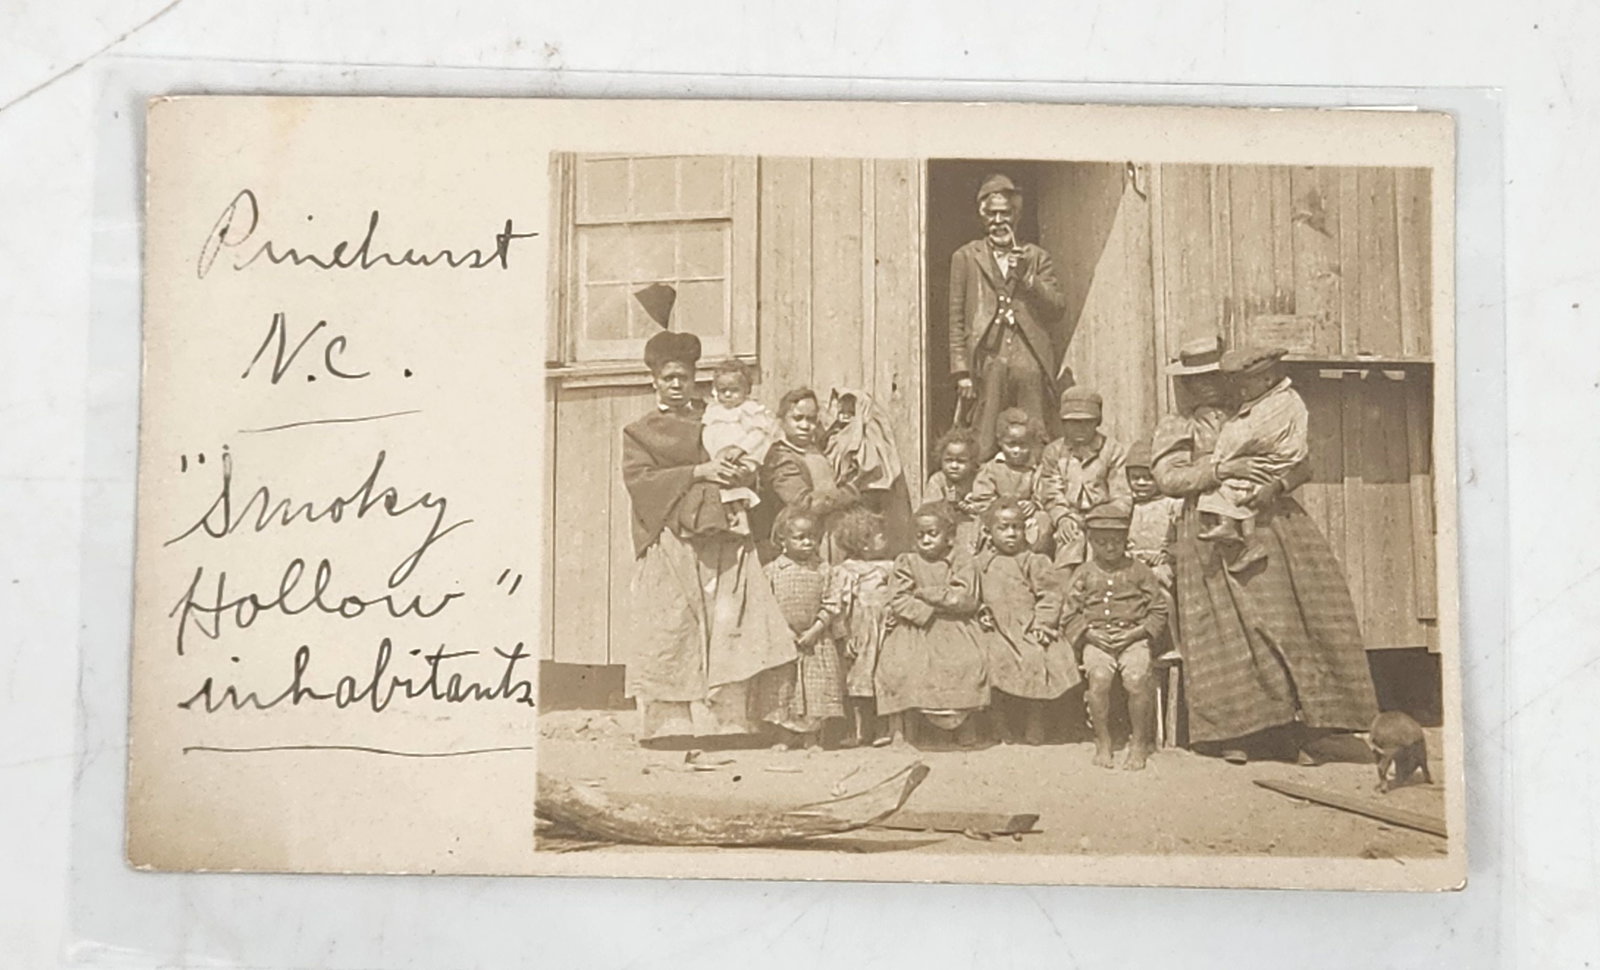 Pinehurst
N.C.
"Smoky
Hollow"
inhabitants